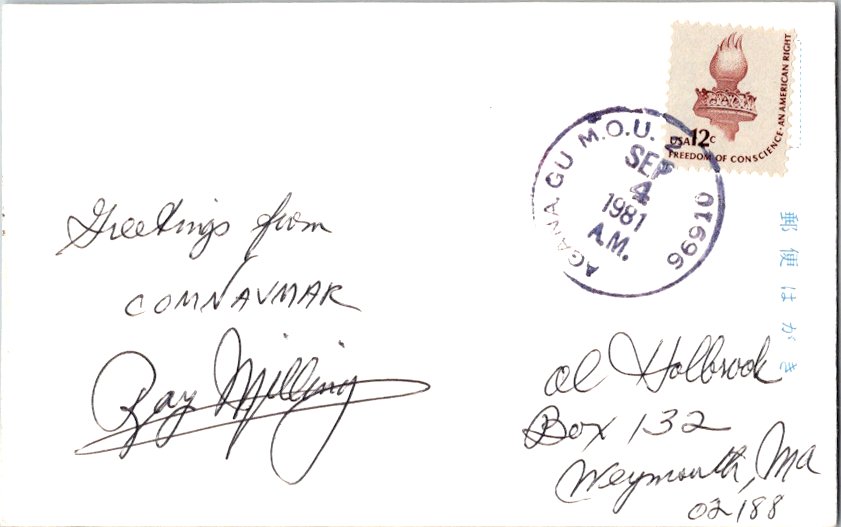 USA 12c
FREEDOM OF CONSCIENCE·AN AMERICAN RIGHT
AGANA, GU M.O.U. 2 96910
SEP
4
1981
A.M.
郵便はがき
Greetings from
COMNAVMAR
Ray Milling
Al Holbrook
Box 132
Weymouth, Ma
02188